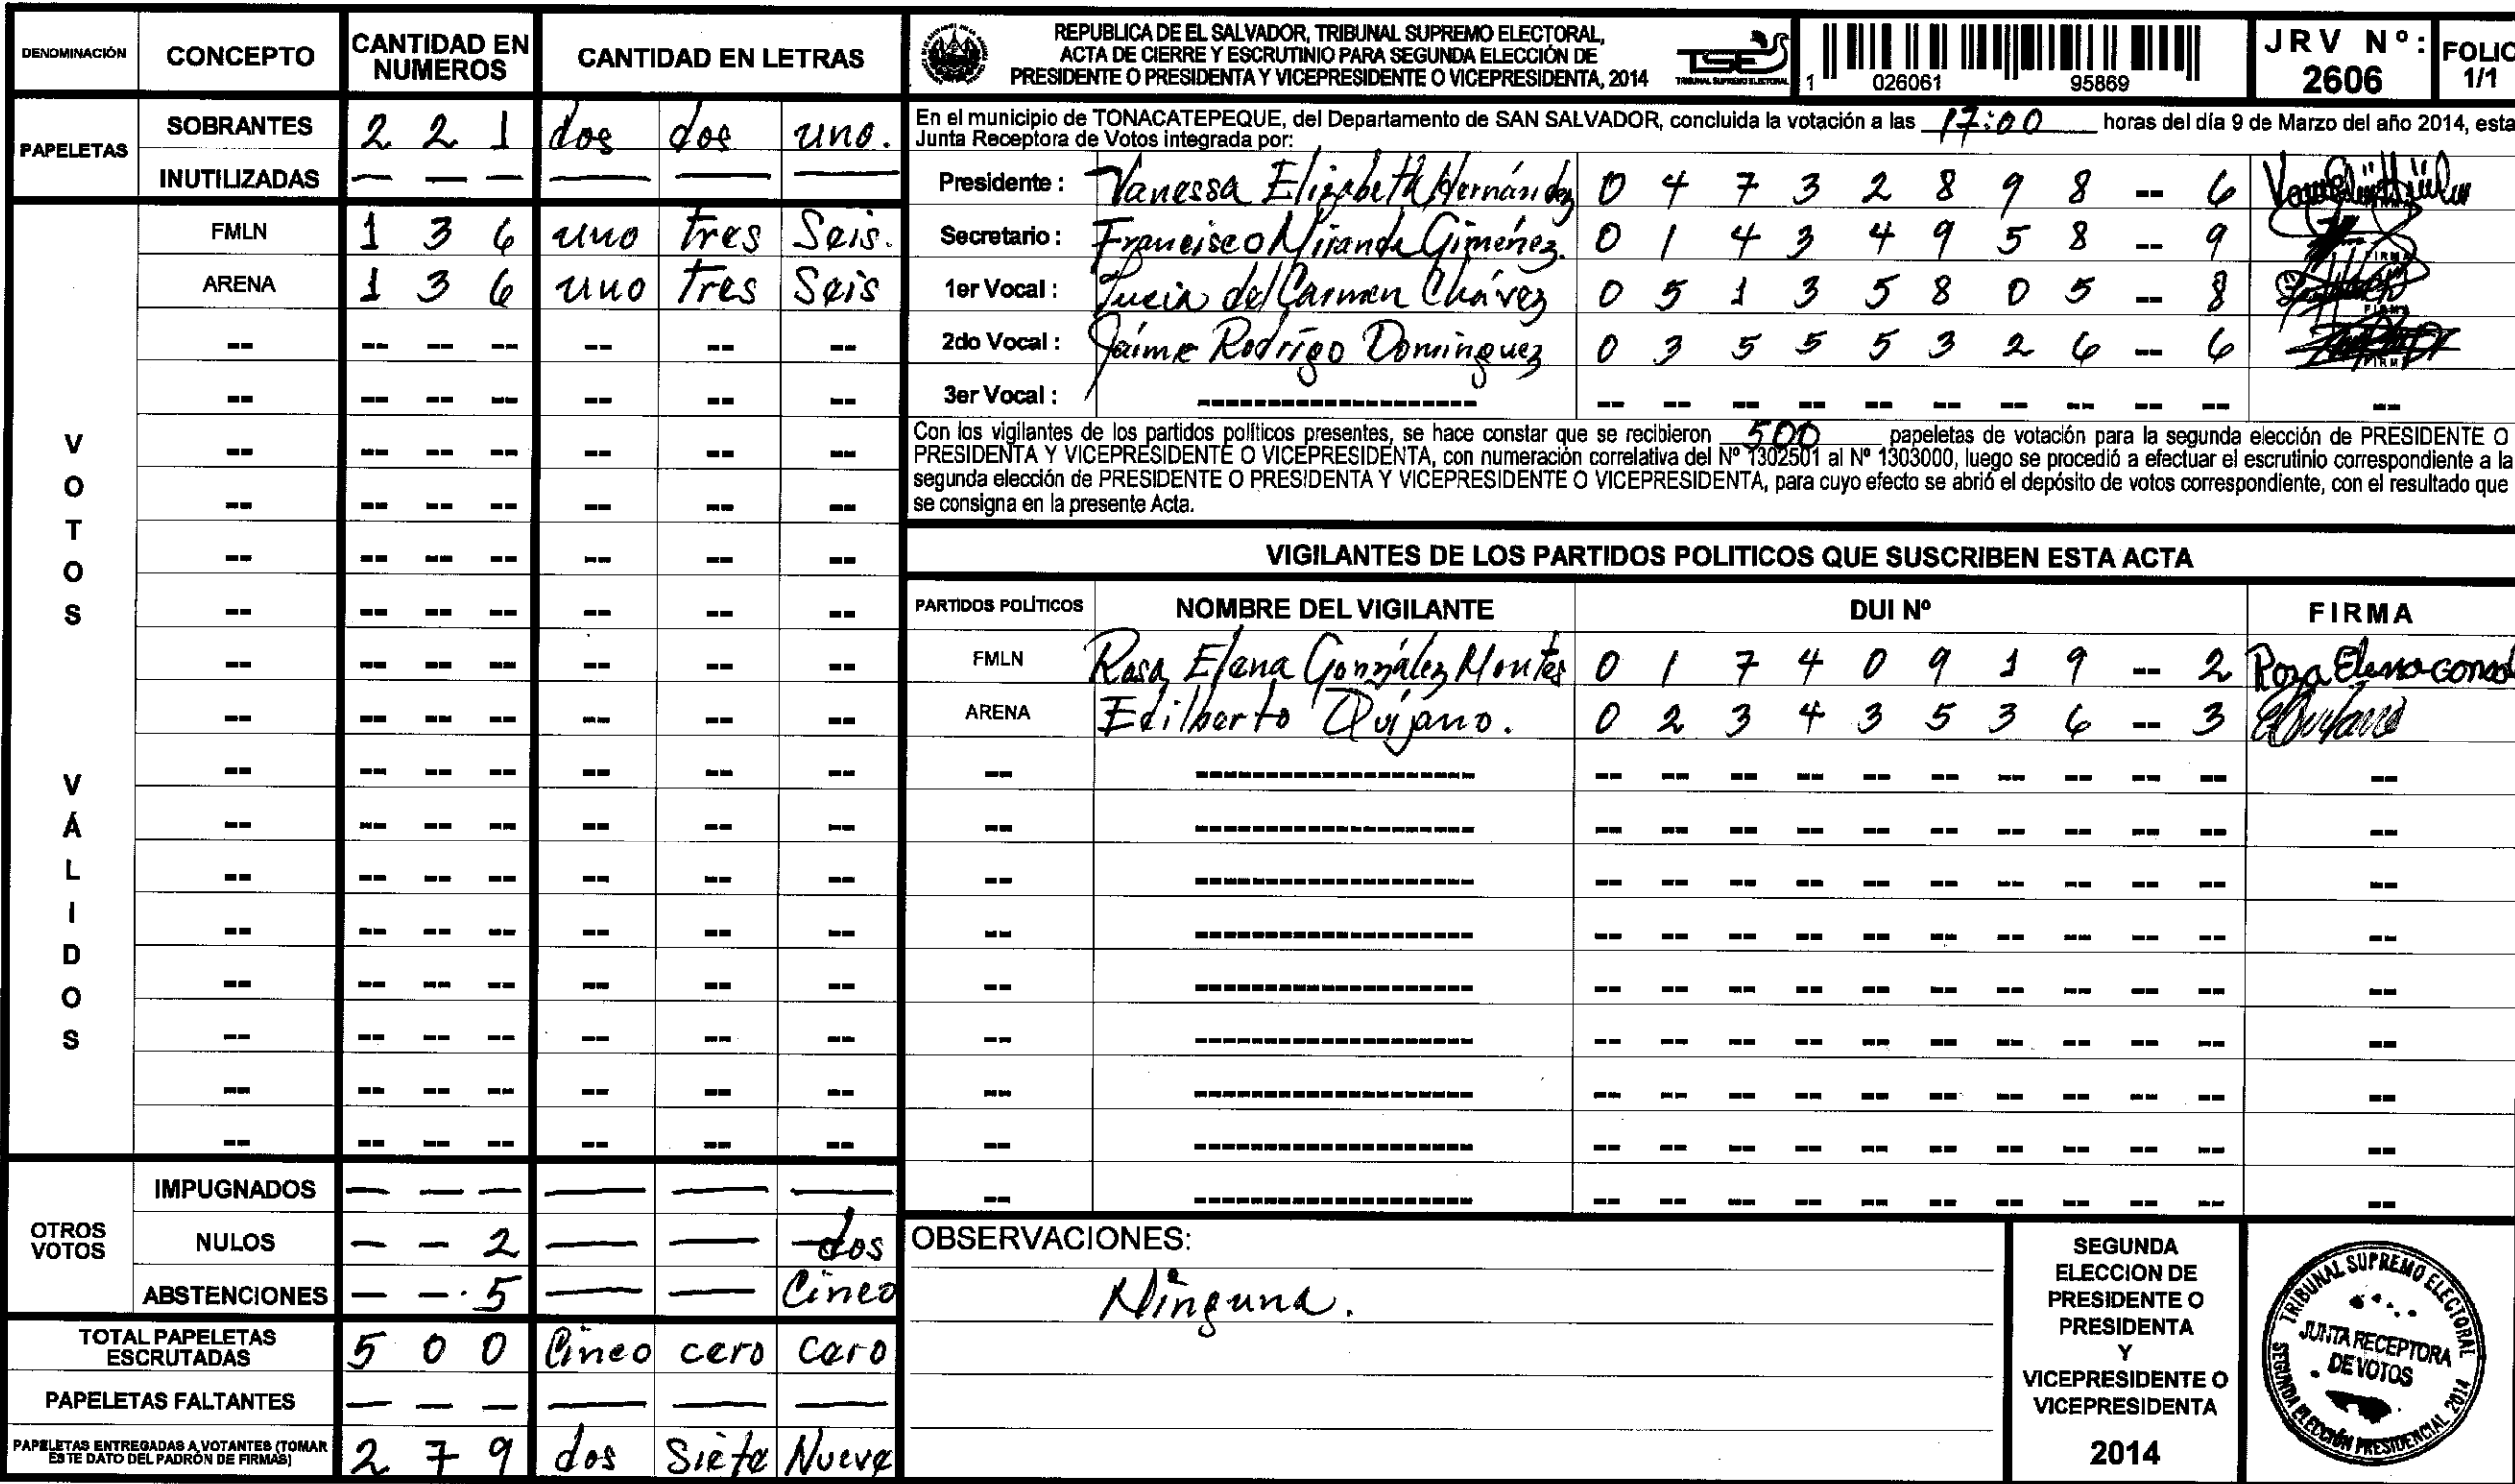 DENOMINACIÓN CONCEPTO CANTIDAD EN NUMEROS CANTIDAD EN LETRAS
PAPELETAS
SOBRANTES 2 2 1 dos dos uno.
INUTILIZADAS — — — — — —
VOTOS VÁLIDOS
FMLN 1 3 6 uno tres Seis.
ARENA 1 3 6 uno Tres Seis
OTROS VOTOS
IMPUGNADOS — — — — — —
NULOS — — 2 — — dos
ABSTENCIONES — — 5 — — Cinco
TOTAL PAPELETAS ESCRUTADAS 5 0 0 Cinco cero Cero
PAPELETAS FALTANTES — — — — — —
PAPELETAS ENTREGADAS A VOTANTES (TOMAR ESTE DATO DEL PADRÓN DE FIRMAS) 2 7 9 dos Siete Nueve
REPUBLICA DE EL SALVADOR, TRIBUNAL SUPREMO ELECTORAL,
ACTA DE CIERRE Y ESCRUTINIO PARA SEGUNDA ELECCIÓN DE
PRESIDENTE O PRESIDENTA Y VICEPRESIDENTE O VICEPRESIDENTA, 2014
TSE
TRIBUNAL SUPREMO ELECTORAL
1 026061 95869
JRV Nº: 2606
FOLIO 1/1
En el municipio de TONACATEPEQUE, del Departamento de SAN SALVADOR, concluida la votación a las 17:00 horas del día 9 de Marzo del año 2014, esta
Junta Receptora de Votos integrada por:
Presidente : Vanessa Elizabeth Hernández 0 4 7 3 2 8 9 8 -- 6
Secretario : Francisco Miranda Giménez. 0 1 4 3 4 9 5 8 -- 9
1er Vocal : Lucia del Carmen Chávez 0 5 1 3 5 8 0 5 -- 8
2do Vocal : Jaime Rodrigo Dominguez 0 3 5 5 5 3 2 6 -- 6
3er Vocal :
Con los vigilantes de los partidos políticos presentes, se hace constar que se recibieron 500 papeletas de votación para la segunda elección de PRESIDENTE O
PRESIDENTA Y VICEPRESIDENTE O VICEPRESIDENTA, con numeración correlativa del Nº 1302501 al Nº 1303000, luego se procedió a efectuar el escrutinio correspondiente a la
segunda elección de PRESIDENTE O PRESIDENTA Y VICEPRESIDENTE O VICEPRESIDENTA, para cuyo efecto se abrió el depósito de votos correspondiente, con el resultado que
se consigna en la presente Acta.
VIGILANTES DE LOS PARTIDOS POLITICOS QUE SUSCRIBEN ESTA ACTA
PARTIDOS POLÍTICOS NOMBRE DEL VIGILANTE DUI Nº FIRMA
FMLN Rosa Elena González Montes 0 1 7 4 0 9 1 9 -- 2 Roza Elena
ARENA Edilberto Quijano. 0 2 3 4 3 5 3 6 -- 3
OBSERVACIONES:
Ninguna.
SEGUNDA
ELECCION DE
PRESIDENTE O
PRESIDENTA
Y
VICEPRESIDENTE O
VICEPRESIDENTA
2014
TRIBUNAL SUPREMO ELECTORAL
JUNTA RECEPTORA
DE VOTOS
SEGUNDA ELECCIÓN PRESIDENCIAL 2014